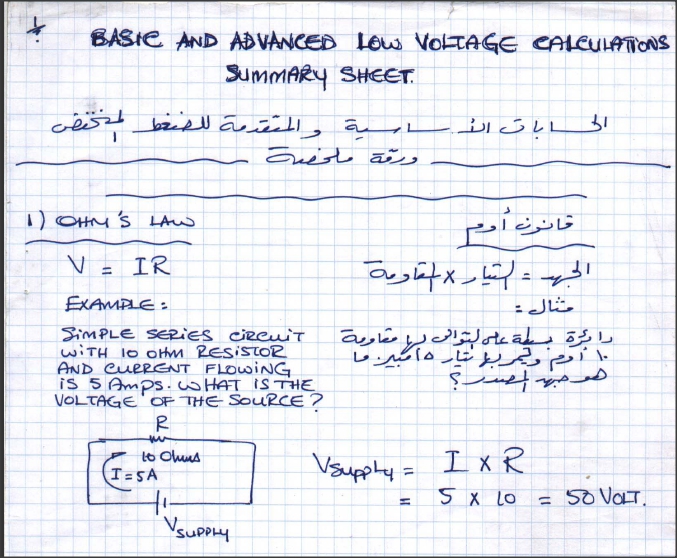 BASIC AND ADVANCED LOW VOLTAGE CALCULATIONS
SUMMARY SHEET.
الحسابات الأساسية والمتقدمة للضغط المنخفض
ورقة ملخصة
1) OHM'S LAW
قانون أوم
V = IR
الجهد = التيار x المقاومة
EXAMPLE:
مثال:
SIMPLE SERIES CIRCUIT
WITH 10 OHM RESISTOR
AND CURRENT FLOWING
IS 5 Amps. WHAT IS THE
VOLTAGE OF THE SOURCE?
دائرة بسيطة على التوالي لها مقاومة
١٠ أوم ويمر بها تيار ٥ أمبير. ما
هو جهد المصدر؟
R
10 Ohms
I = 5A
VSUPPLY
Vsupply = I x R
= 5 x 10 = 50 VOLT.